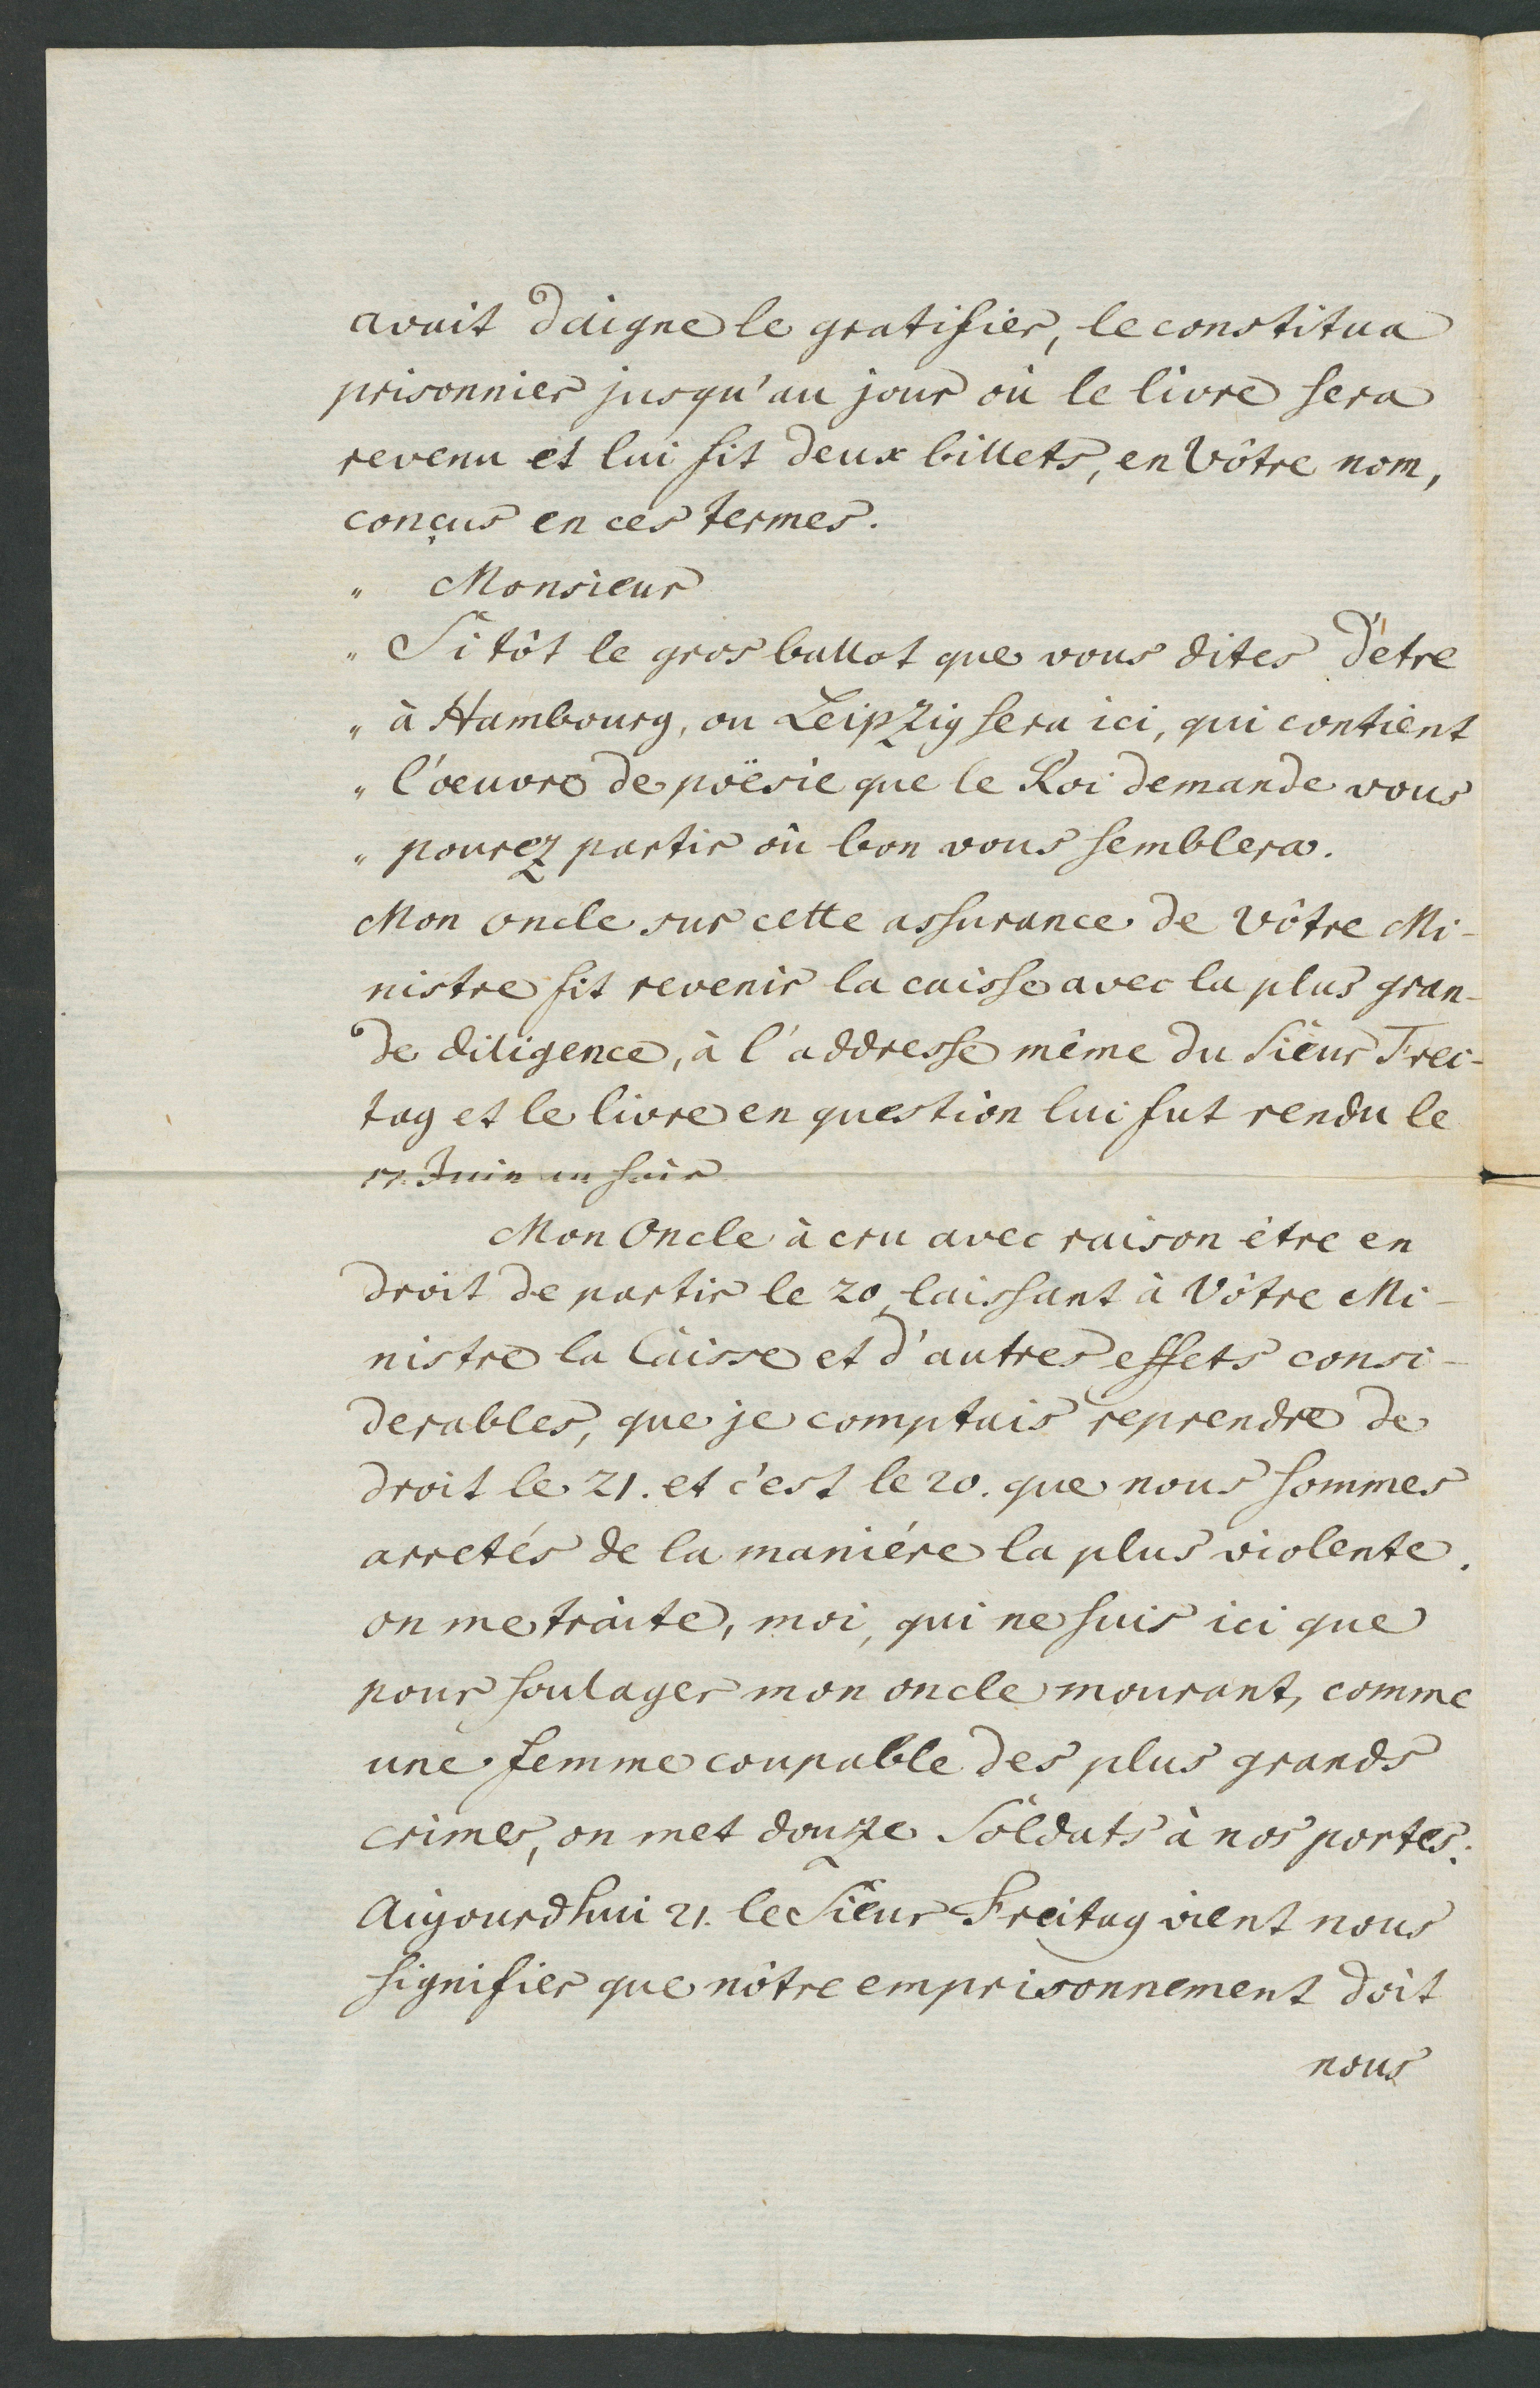 avait daigne le gratifier, le constitua
prisonnier jusqu'au jour où le livre sera
revenu et lui fit deux billets, en Vôtre nom,
conçus en ces termes.
" Monsieur
" Sitôt le gros ballot que vous dites d'étre
" à Hambourg, ou Leipzig sera ici, qui contient
" l'oeuvre de poësie que le Roi demande vous
" pourez partir où bon vous semblera.
Mon oncle sur cette assurance de Vôtre Mi-
nistre fit revenir la caisse avec la plus gran-
de diligence, à l'addresse même du Sieur Frei-
tag et le livre en question lui fut rendu le
17. Juin au soir
Mon Oncle à cru avec raison étre en
droit de partir le 20, laissant à Vôtre Mi-
nistre la Caisse et d'autres effets consi-
derables, que je comptais reprendre de
droit le 21. et c'est le 20. que nous sommes
arretés de la maniére la plus violente.
on me traite, moi, qui ne suis ici que
pour soulager mon oncle mourant, comme
une femme coupable des plus grands
crimes, on met douze Soldats à nos portes.
Aujourdhui 21. le Sieur Freitag vient nous
signifier que nôtre emprisonnement doit
nous